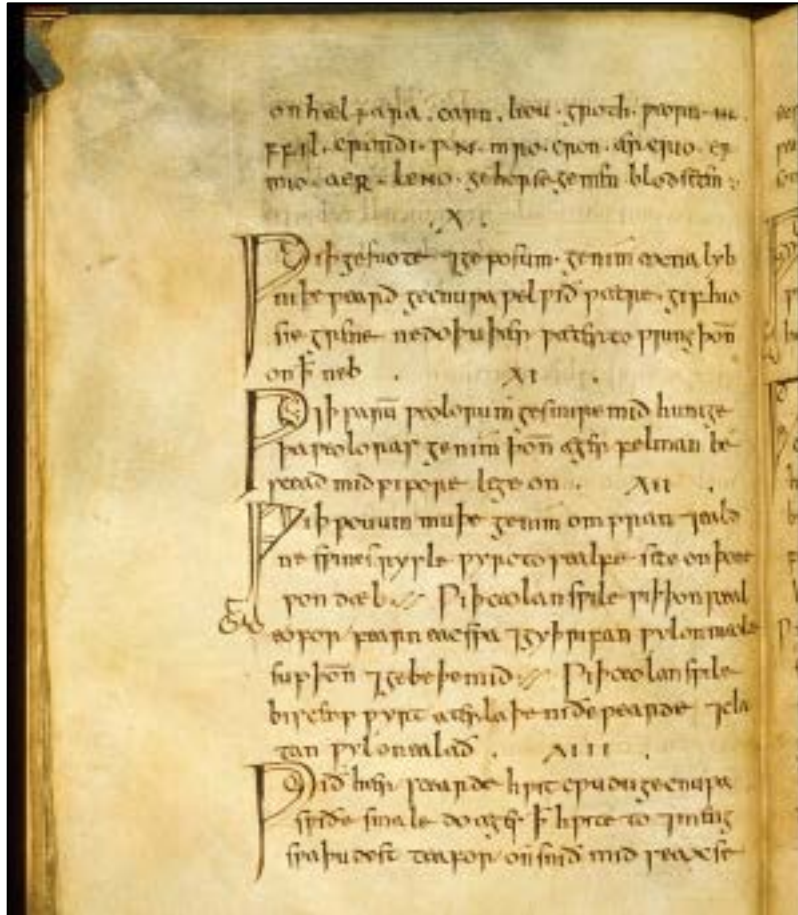 on hæl ƿara . carn . leou . groth . ƿeorn . III .
ffil . crondi . ƿ . N . mro . cron . ærcrio . er
mio . AER . LENO . ge horse ge men blodseten :
. X .
Ƿiþ gesnote ⁊ geposum . genim oxna lyb
niþeƿeard gecnuƿa ƿel ƿið ƿætre . gif hio
sie grene ne do þu þær ƿæter to ƿring þoñ
on ꝥ neb . XI .
Ƿiþ sarū ƿeolorum gesmire mid hunige
þa ƿeoloras genim þoñ æges felman be
scead mid pipore lege on . XII .
Ƿiþ ƿoum muþe genim ompran ⁊ eald
ne sƿines rysle ƿyrc to sealfe sete on þone
ƿon dæl Ƿiþ ceolan sƿile ƿiþ þon sceal
eoforfearn eac sƿa ⁊ gyþrifan ƿyl on meolce
sup þoñ ⁊ gebeþe mid Ƿiþ ceolan sƿile
bisceop ƿyrt atterlaþe niðeƿearde ⁊ cla
tan ƿyl on ealað . XIII .
Ƿið hær sceardе hƿit cƿudu gecnuƿa
sƿiðe smale do æges ꝥ hƿite to ⁊ meng
sƿa þu dest teafor onsnið mid seaxse